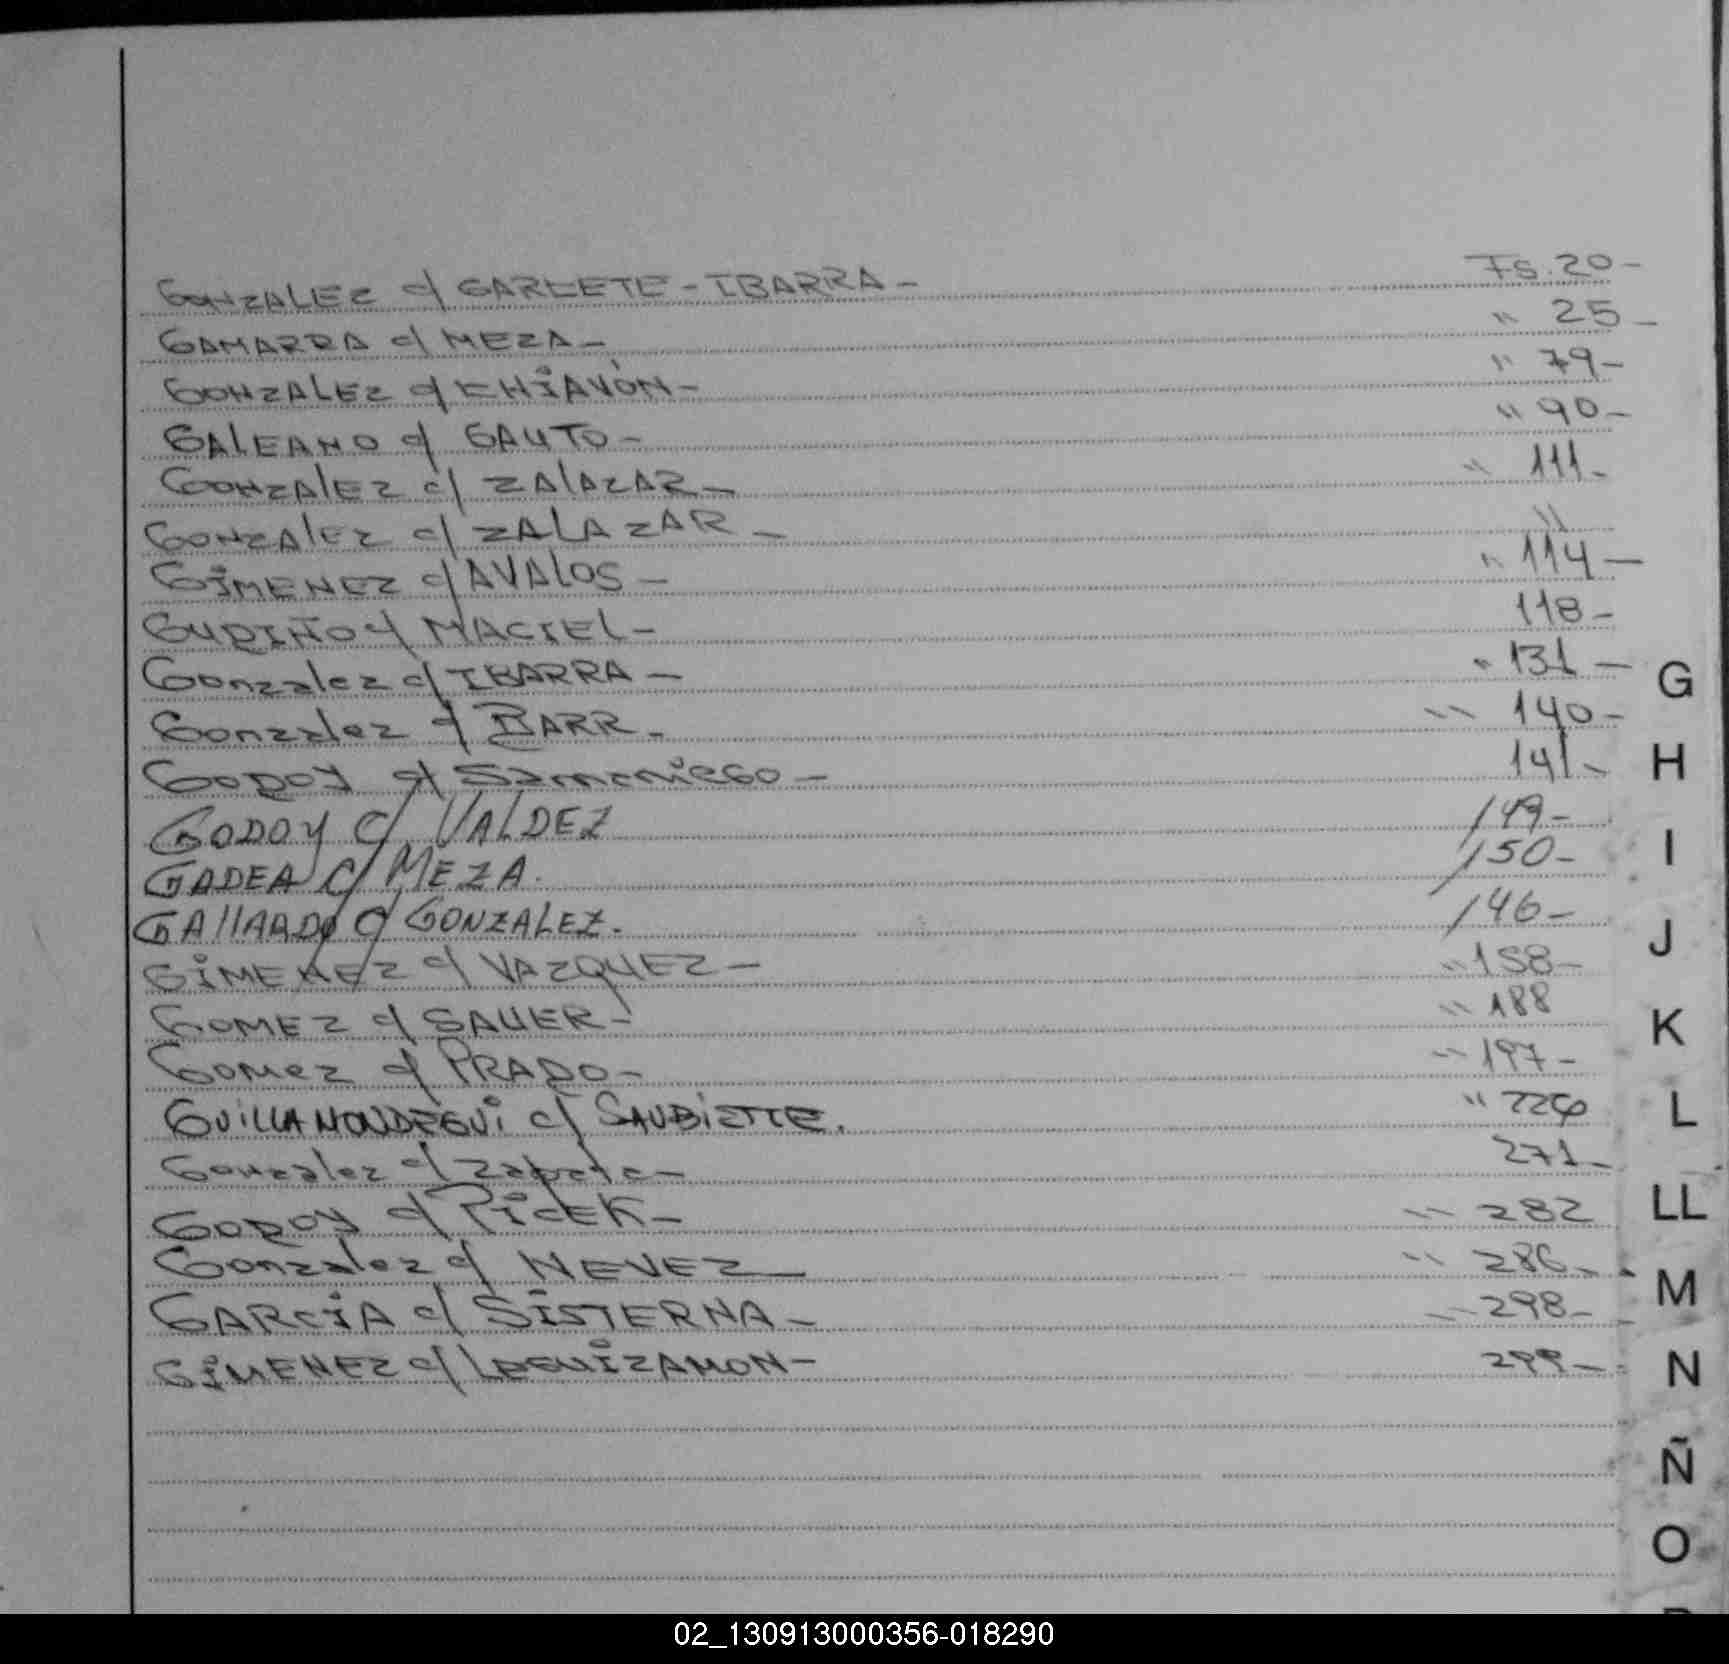 GONZALEZ c/ GARCETE-IBARRA- Fs. 20-
GAMARRA c/ MEZA- " 25-
GONZALEZ c/ CHIAVÓN- " 79-
GALEANO c/ GAUTO- " 90-
GONZALEZ c/ ZALAZAR- " 111-
GONZALEZ c/ ZALAZAR- "
GIMENEZ c/ AVALOS- " 114-
GUDIÑO c/ MACIEL- 118-
GONZALEZ c/ IBARRA- " 131-
GONZALEZ c/ BARR. " 140-
GODOY c/ SAMANIEGO- 141-
GODOY c/ VALDEZ 149-
GADEA c/ MEZA. 150-
GALLARDO c/ GONZALEZ. 146-
GIMENEZ c/ VAZQUEZ- " 158-
GOMEZ c/ SAUER- " 188
GOMEZ c/ PRADO- " 197-
GUILLAMONDEGUI c/ SAUBIETTE. " 226
Gonzalez c/ Zapata- 271-
GODOY c/ PICEK- " 282
GONZALEZ c/ NEVEZ- " 286-
GARCIA c/ SISTERNA- " 298-
GIMENEZ c/ LEGUIZAMON- 299-
G
H
I
J
K
L
LL
M
N
Ñ
O
02_130913000356-018290